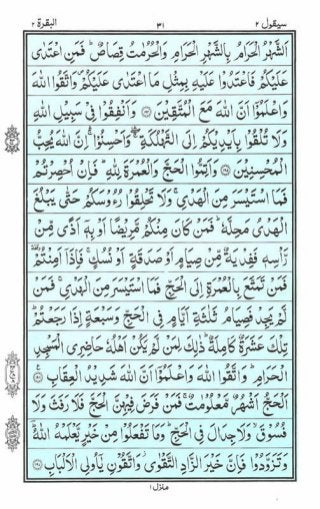 سيقول ٢ ٣١ البقرة ٢
اَلشَّهْرُ الْحَرَامُ بِالشَّهْرِ الْحَرَامِ وَالْحُرُمٰتُ قِصَاصٌ ؕ فَمَنِ اعْتَدٰى
عَلَيْكُمْ فَاعْتَدُوْا عَلَيْهِ بِمِثْلِ مَا اعْتَدٰى عَلَيْكُمْ ۪ وَاتَّقُوا اللّٰهَ
وَاعْلَمُوْۤا اَنَّ اللّٰهَ مَعَ الْمُتَّقِيْنَ ﴿۱۹۴﴾ وَاَنْفِقُوْا فِىْ سَبِيْلِ اللّٰهِ
وَلَا تُلْقُوْا بِاَيْدِيْكُمْ اِلَى التَّهْلُكَةِ ۛۚ وَاَحْسِنُوْا ۛۚ اِنَّ اللّٰهَ يُحِبُّ
الْمُحْسِنِيْنَ ﴿۱۹۵﴾ وَاَتِمُّوا الْحَجَّ وَالْعُمْرَةَ لِلّٰهِ ؕ فَاِنْ اُحْصِرْتُمْ
فَمَا اسْتَيْسَرَ مِنَ الْهَدْىِ ۚ وَلَا تَحْلِقُوْا رُءُوْسَكُمْ حَتّٰى يَبْلُغَ
الْهَدْىُ مَحِلَّهٗ ؕ فَمَنْ كَانَ مِنْكُمْ مَّرِيْضًا اَوْ بِهٖۤ اَذًى مِّنْ
رَّاْسِهٖ فَفِدْيَةٌ مِّنْ صِيَامٍ اَوْ صَدَقَةٍ اَوْ نُسُكٍ ۚ فَاِذَاۤ اَمِنْتُمْ
فَمَنْ تَمَتَّعَ بِالْعُمْرَةِ اِلَى الْحَجِّ فَمَا اسْتَيْسَرَ مِنَ الْهَدْىِ ۚ فَمَنْ
لَّمْ يَجِدْ فَصِيَامُ ثَلٰثَةِ اَيَّامٍ فِى الْحَجِّ وَسَبْعَةٍ اِذَا رَجَعْتُمْ ؕ
تِلْكَ عَشَرَةٌ كَامِلَةٌ ؕ ذٰلِكَ لِمَنْ لَّمْ يَكُنْ اَهْلُهٗ حَاضِرِى الْمَسْجِدِ
الْحَرَامِ ؕ وَاتَّقُوا اللّٰهَ وَاعْلَمُوْۤا اَنَّ اللّٰهَ شَدِيْدُ الْعِقَابِ ﴿۱۹۶﴾
اَلْحَجُّ اَشْهُرٌ مَّعْلُوْمٰتٌ ۚ فَمَنْ فَرَضَ فِيْهِنَّ الْحَجَّ فَلَا رَفَثَ وَلَا
فُسُوْقَ ۙ وَلَا جِدَالَ فِى الْحَجِّ ؕ وَمَا تَفْعَلُوْا مِنْ خَيْرٍ يَّعْلَمْهُ اللّٰهُ ؕ
وَتَزَوَّدُوْا فَاِنَّ خَيْرَ الزَّادِ التَّقْوٰى ۫ وَاتَّقُوْنِ يٰۤاُولِى الْاَلْبَابِ ﴿۱۹۷﴾
منزل ۱